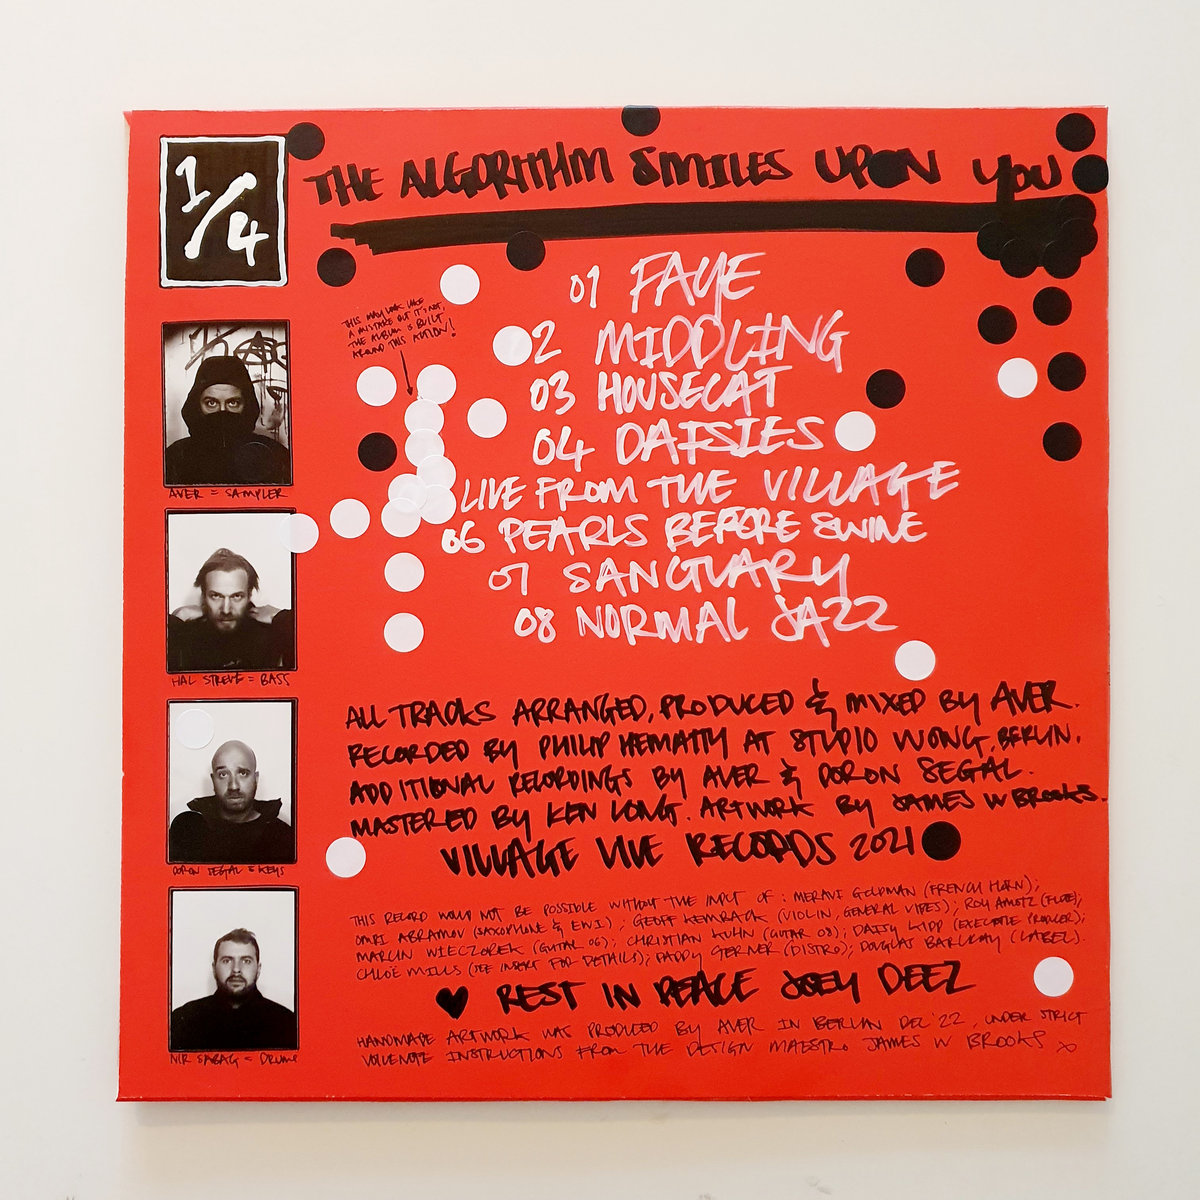 1/4
THE ALGORITHM SMILES UPON YOU
01 FAYE
2 MIDDLING
03 HOUSECAT
04 DAISIES
LIVE FROM THE VILLAGE
06 PEARLS BEFORE SWINE
07 SANCTUARY
08 NORMAL JAZZ
THIS MAY LOOK LIKE
A MISTAKE BUT IT'S NOT,
THE ALBUM IS BUILT
AROUND THIS ACTION!
AVER = SAMPLER
HAL STREVE = BASS
DORON SEGAL = KEYS
NIR SABAG = DRUMS
ALL TRACKS ARRANGED, PRODUCED & MIXED BY AVER.
RECORDED BY PHILIP HEMATTY AT STUDIO WONG, BERLIN.
ADDITIONAL RECORDINGS BY AVER & DORON SEGAL.
MASTERED BY KEN LONG. ARTWORK BY JAMES W BROOKS.
VILLAGE LIVE RECORDS 2021
THIS RECORD WOULD NOT BE POSSIBLE WITHOUT THE INPUT OF: MERAVI GOLDMAN (FRENCH HORN);
OMRI ABRAMOV (SAXOPHONE & EWI); GEOFF KEMBACK (VIOLIN, GENERAL VIBES); ROY AMOTZ (FLUTE);
MARLIN WIECZOREK (GUITAR 06); CHRISTIAN KUHN (GUITAR 08); DAISY KIDD (EXECUTIVE PRODUCER);
CHLOË MILLS (SEE INSERT FOR DETAILS); PADDY GERNER (DISTRO); DOUGLAS BARCLAY (LABEL).
♥ REST IN PEACE JOEY DEEZ
HANDMADE ARTWORK WAS PRODUCED BY AVER IN BERLIN DEC '22, UNDER STRICT
VOICENOTE INSTRUCTIONS FROM THE DESIGN MAESTRO JAMES W BROOKS X